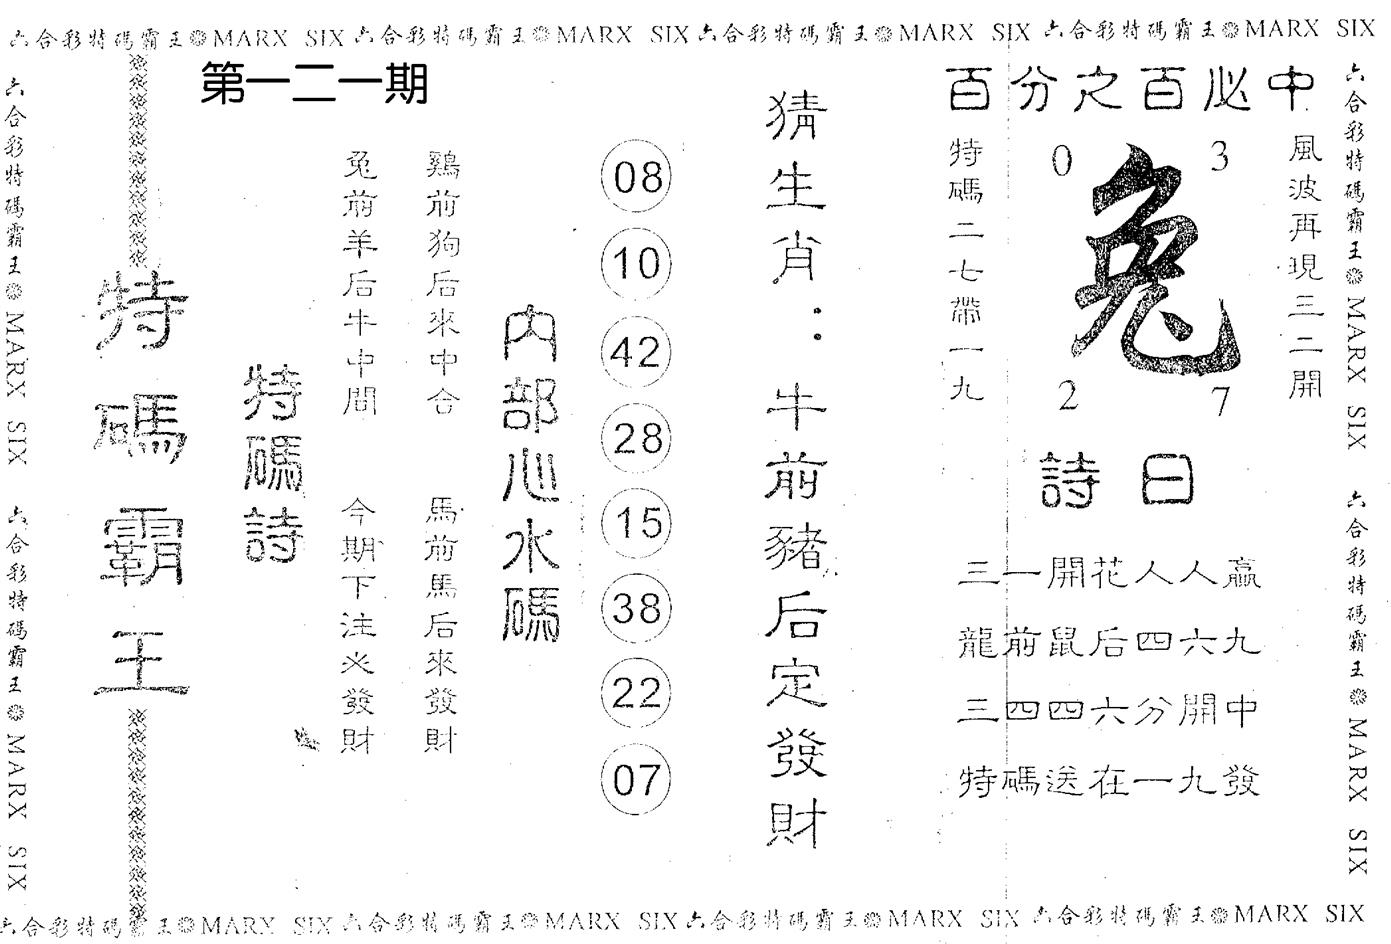 六合彩特碼霸王❁MARX SIX六合彩特碼霸王❁MARX SIX六合彩特碼霸王❁MARX SIX六合彩特碼霸王❁MARX SIX
六合彩特碼霸王❁MARX SIX
六合彩特碼霸王❁MARX SIX
百分之百必中
風波再現三二開
0 3
兔
2 7
特碼二七帶一九
詩曰
三一開花人人贏
龍前鼠后四六九
三四四六分開中
特碼送在一九發
猜生肖：牛前豬后定發財
08
10
42
28
15
38
22
07
內部心水碼
鷄前狗后來中合
馬前馬后來發財
兔前羊后牛中間
今期下注必發財
特碼詩
第一二一期
特碼霸王
六合彩特碼霸王❁MARX SIX
六合彩特碼霸王❁MARX SIX
六合彩特碼霸王❁MARX SIX六合彩特碼霸王❁MARX SIX六合彩特碼霸王❁MARX SIX六合彩特碼霸王❁MARX SIX